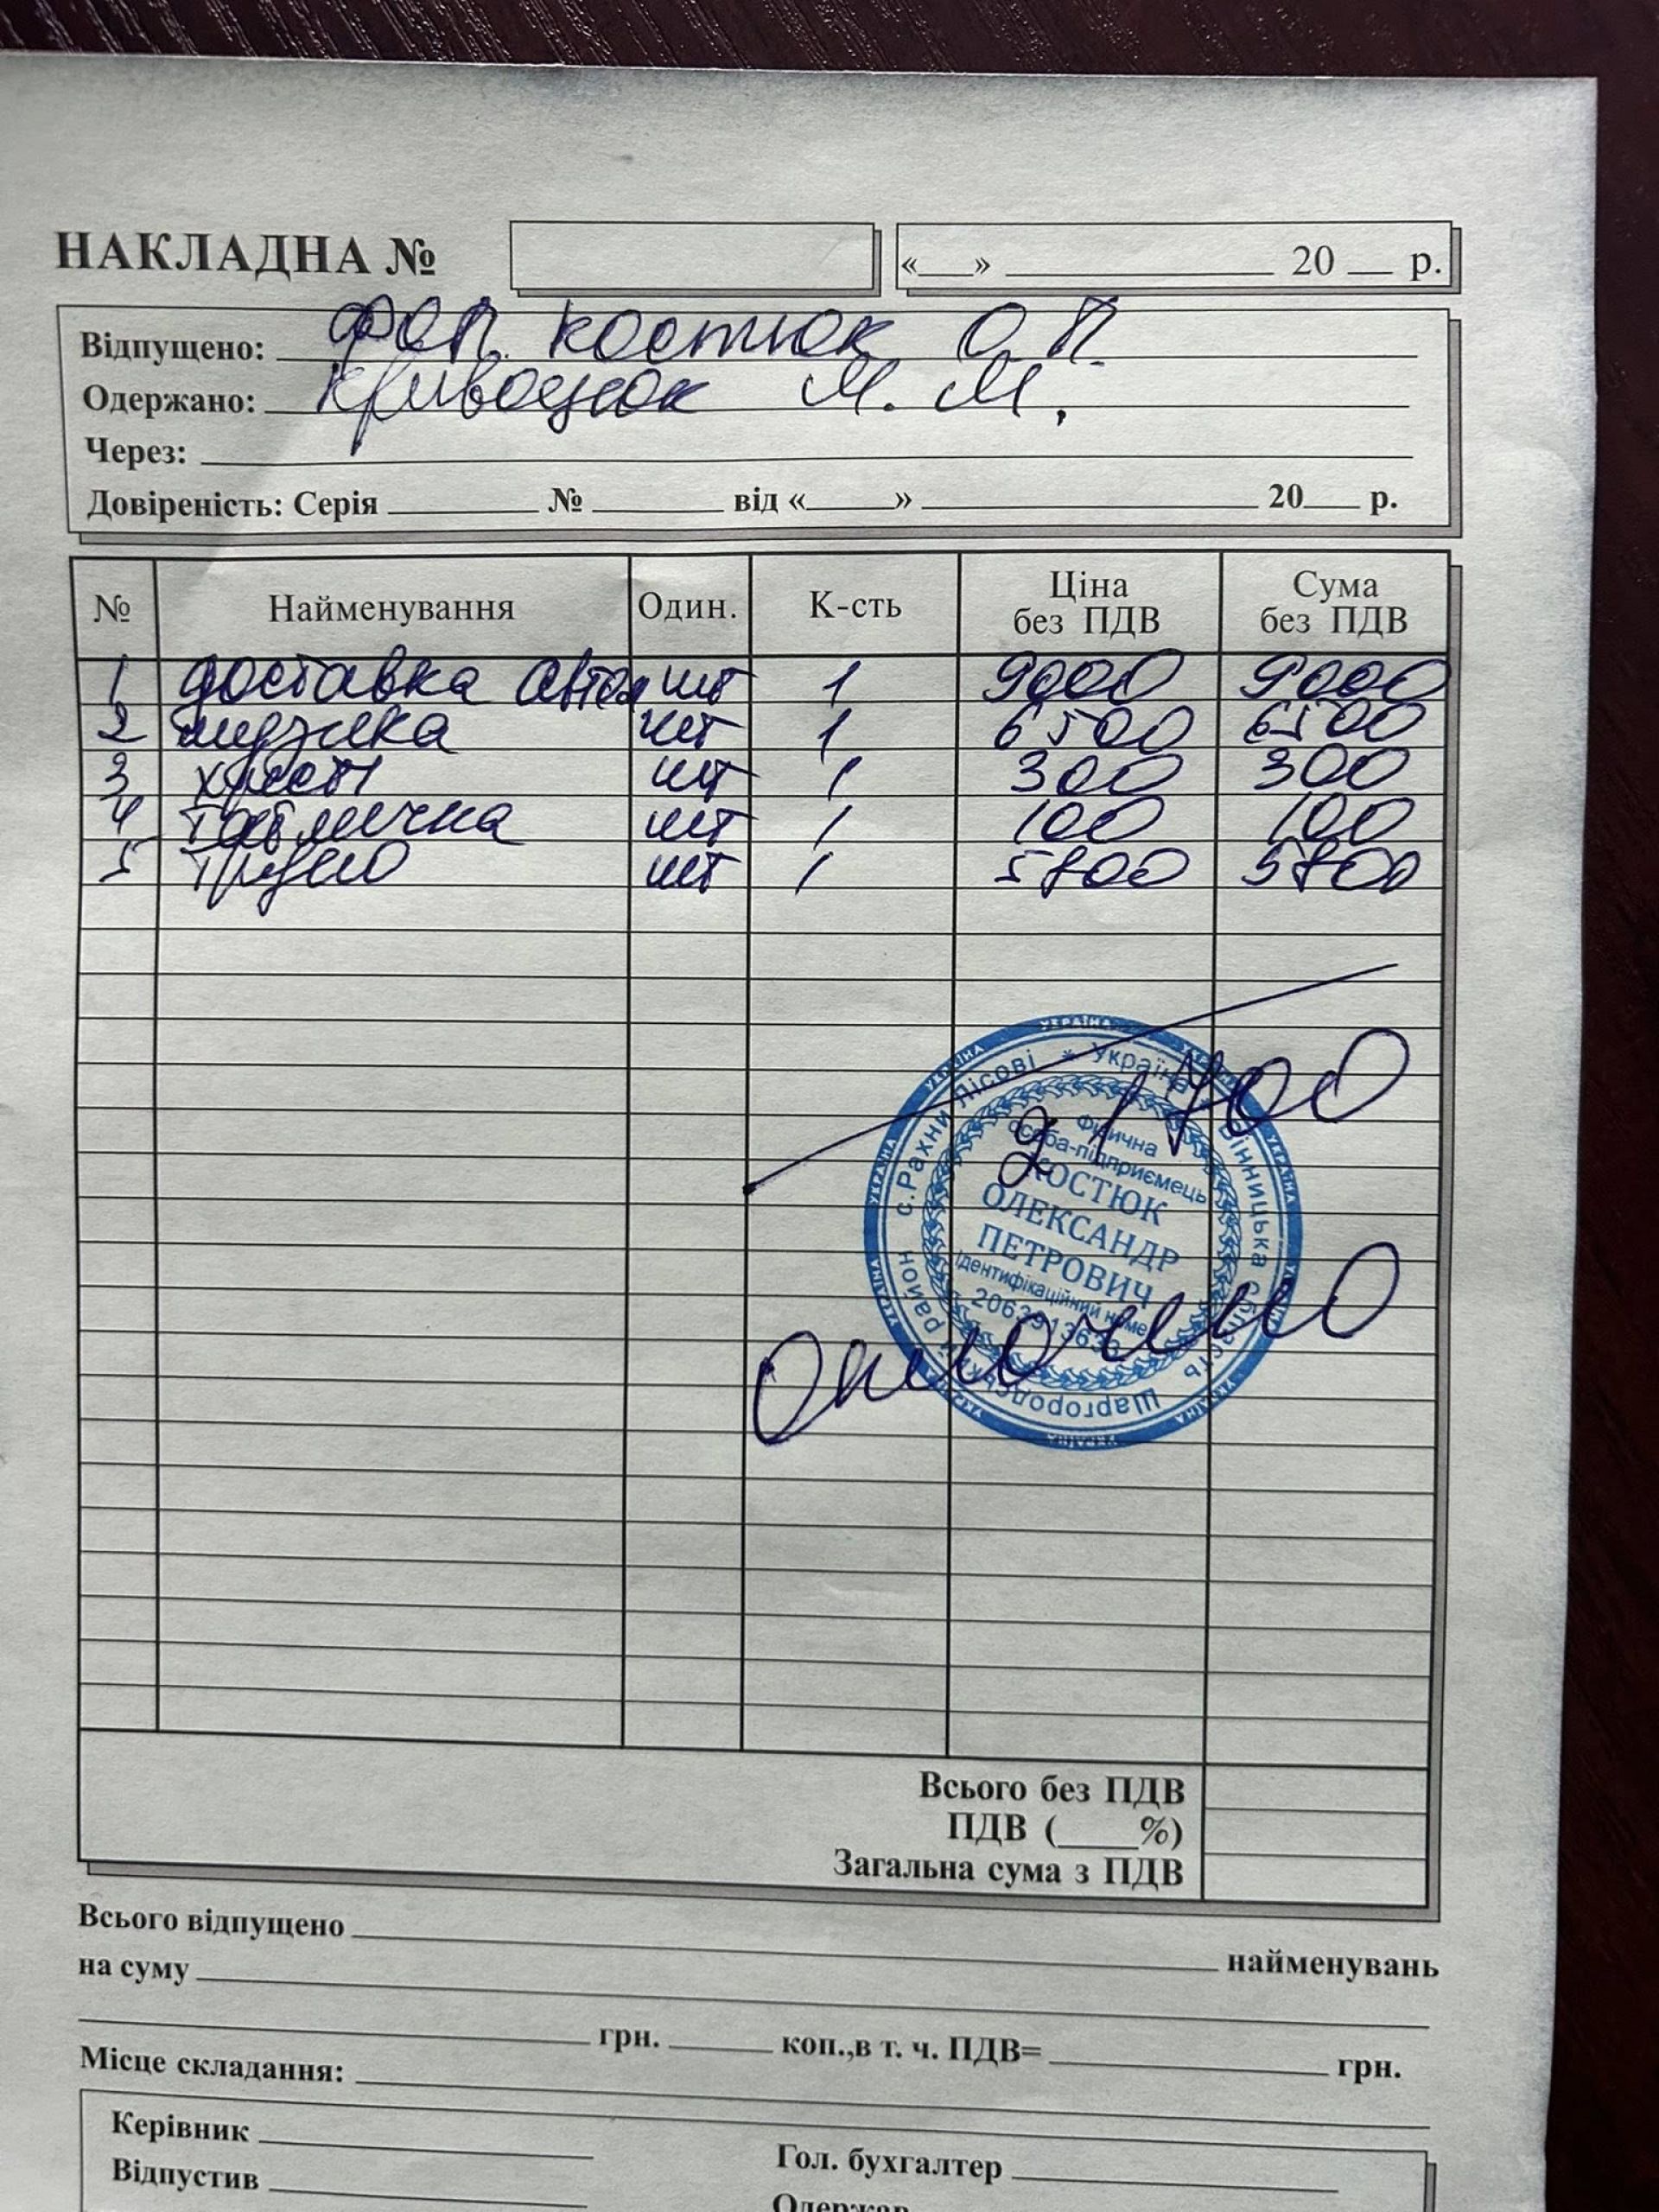 НАКЛАДНА № «___» ____ 20 __ р.
Відпущено: ФОП Костюк О.П.
Одержано: М. М.
Через:
Довіреність: Серія ____ № ____ від «____» ____ 20__ р.
№ Найменування Один. К-сть Ціна без ПДВ Сума без ПДВ
1 доставка шт 1 9000 9000
2 музика шт 1 6500 6500
3 хрест шт 1 300 300
4 табличка шт 1 100 100
5 труно шт 1 5800 5800
21700
УКРАЇНА
* Україна * Вінницька область Шаргородський район с.Рахни Лісові
Фізична
особа-підприємець
КОСТЮК
ОЛЕКСАНДР
ПЕТРОВИЧ
ідентифікаційний номер
Оплочено
Всього без ПДВ
ПДВ (____%)
Загальна сума з ПДВ
Всього відпущено ____ найменувань
на суму
____ грн. ____ коп.,в т. ч. ПДВ= ____ грн.
Місце складання:
Керівник ____ Гол. бухгалтер ____
Відпустив ____ Одержав